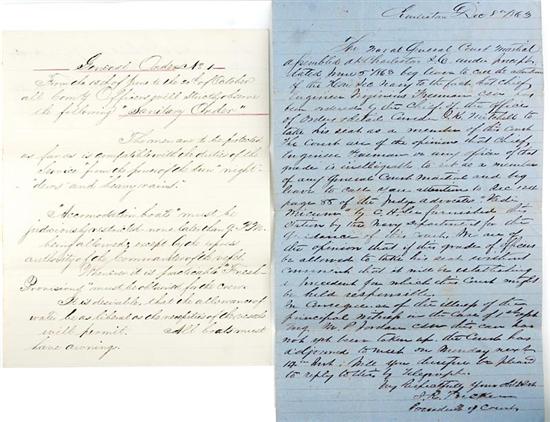 General Order No 1
From the 1st of June to the 1st of October
all Comdg Officers will strictly observe
the following "Sanitary Order"
The men are to be protected
as far as is compatible with the duties of the
Service from the power of the sun "night-
dews and heavy rains."
"Accomodation boats" must be
judiciously restricted none later than 9 P.M.
be allowed, except by the
authority of the Commander of the
Whenever it is practicable "Fresh
Provisions" must be obtained for the crew
It is desirable that the allowance of
water be as liberal as the necessities of the vessels
will permit. All boats must
have awnings.
Dec 1863
The Naval General Court Martial
assembled at Charleston S.C. under precept
dated June 5th 1863 beg leave to call the attention
of the Hon. Sec Navy to the fact that chief
Engineer
been ordered by the Chief of the office
of Orders & Detail
his seat as a member of this Court
The Court are of the opinion that Chief
Engineer or any officer of his
grade is ineligible to sit as a member
of any General Court Martial and beg
leave to call your attention to
page 88 of the Judge Advocates "Vade
Mecum" by C. H. furnished this
Station by the Navy department for the
guidance of the court. We are of
the opinion that if this grade of officer
be allowed to take his seat without
comment that it will be establishing
a precedent for which this Court might
be held responsible.
In consequence of the illness of the
principal witness in the case of
Mr. P. Jordan the case has
not yet been taken up the Court has
adjourned to meet on Monday next
Inst. Will you therefore be pleased
to reply to this by Telegraph.
Very Respectfully Your Obt
President of Court